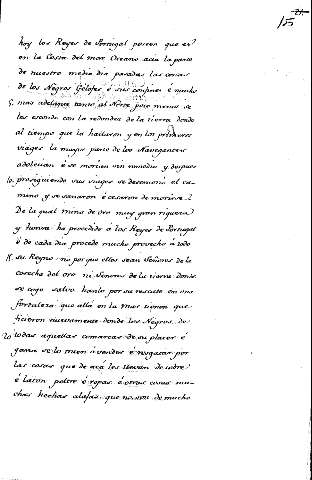 21.
15
hoy los Reyes de Portugal poseen que es
en la Costa del mar Oceano acia la parte
de nuestro medio dia pasadas las cosas
de los Negros Gelofes é sus confines é mucho
5. mas adelante tanto al Norte
les esconde con la redondez de la tierra donde
al tiempo que la hallaron y en los primeros
viages la mayor parte de los Navegantes
adolecian é se morian sin remedio y despues
10. prosiguiendo sus viages se descanino el ca-
mino, y se sanaron é cesaron de morirse.
De la qual mina de oro muy gran riqueza
y honra ha procedido a los Reyes de Portugal
é de cada dia procede mucho provecho á todo
15. su Reyno no por que ellos sean Señores de la
cosecha del oro ni Señores de la tierra donde
se coge salvo hanlo por su rescate en una
fortaleza que allá en la mar tienen que
ficieron nuevamente donde los Negros de
20 todas aquellas comarcas de su placer é
gana se lo traen á vender é resgatar por
las cosas que de acá les llevan de cobre
é laton peltre é ropas é otras cosas mu-
chas hechas alajas que no son de mucho